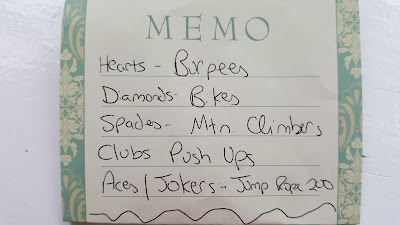 MEMO
Hearts - Burpees
Diamonds- Bikes
Spades- Mtn. Climbers
Clubs Push Ups
Aces/Jokers- Jump Rope 200